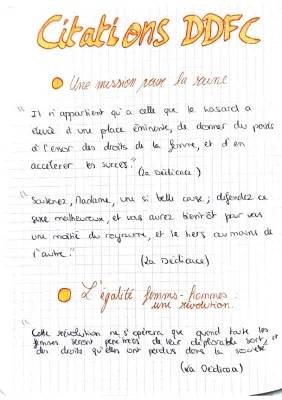 Citations DDFC
Une mission pour la reine
"Il n'appartient qu'à celle que le hasard a
élevée à une place éminente, de donner du poids
à l'essor des droits de la femme, et d'en
accélérer les succès." (La Dédicace)
"Soutenez, Madame, une si belle cause ; défendez ce
sexe malheureux, et vous aurez bientôt pour vous
une moitié du royaume, et le tiers au moins de
l'autre." (La Dédicace)
L'égalité femmes-hommes :
une révolution.
"Cette révolution ne s'opèrera que quand toute les
femmes seront pénétrées de leur déplorable sort, et
des droits qu'elles ont perdus dans la société"
(La Dédicace)